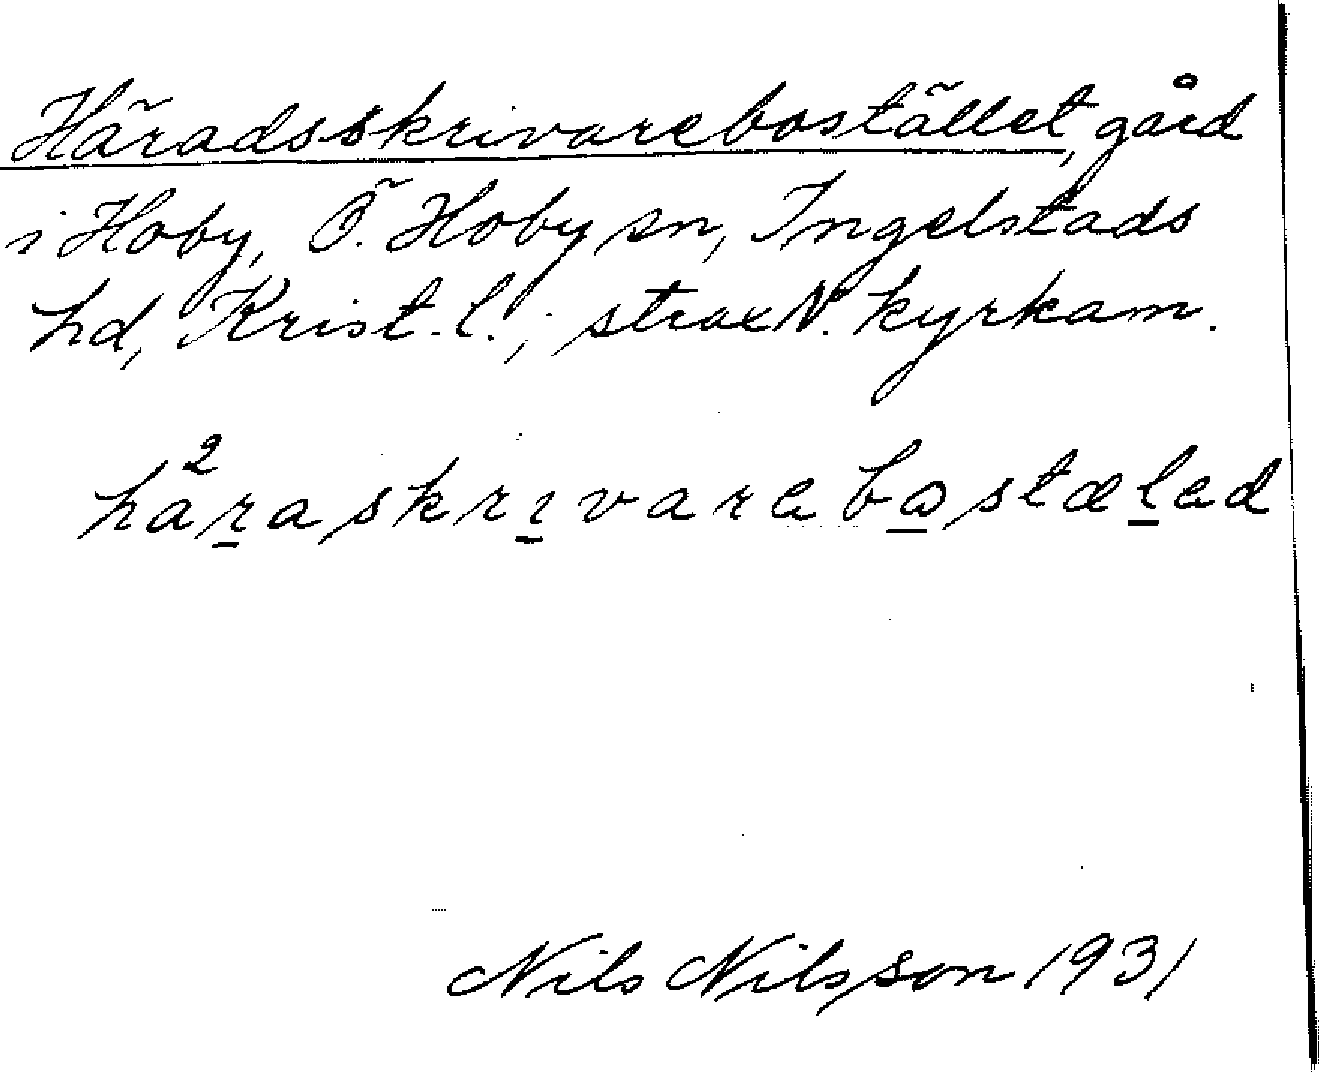 Häradsskrivarebostället, gård
i Hoby, Ö. Hoby sn, Ingelstads
hd, Krist. l.; strax N. kyrkam.
ha²r̲askrı̲varebo̲stæl̲ad
Nils Nilsson 1931